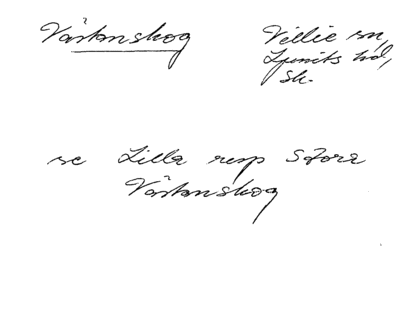 Västanskog
Villie sn,
Ljunits hd,
Sk.
se Lilla resp Stora
Västanskog